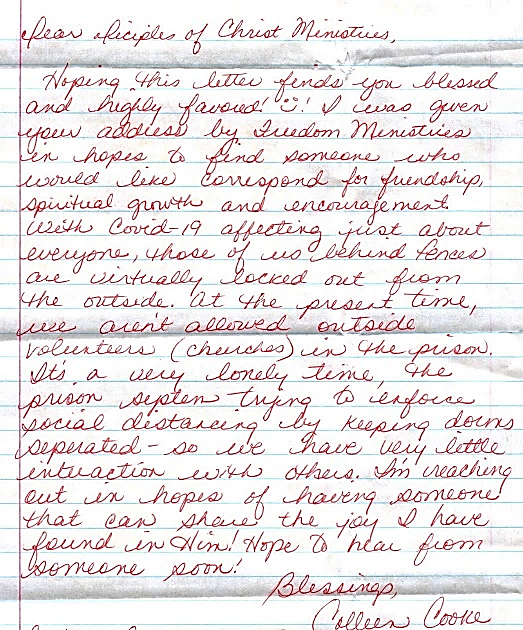 Dear Diciples of Christ Ministries,
Hoping this letter finds you blessed
and highly favored! ! I was given
your address by Freedom Ministries
in hopes to find someone who
would like correspond for friendship,
spiritual growth and encouragement.
With Covid-19 affecting just about
everyone, those of us behind fences
are virtually locked out from
the outside. At the present time,
we aren't allowed outside
volunteers (churches) in the prison.
It's a very lonely time, the
prison septem trying to enforce
social distancing by keeping dorms
seperated - so we have very little
interaction with others. I'm reaching
out in hopes of having someone
that can share the joy I have
found in Him! Hope to hear from
someone soon!
Blessings,
Colleen Cooke